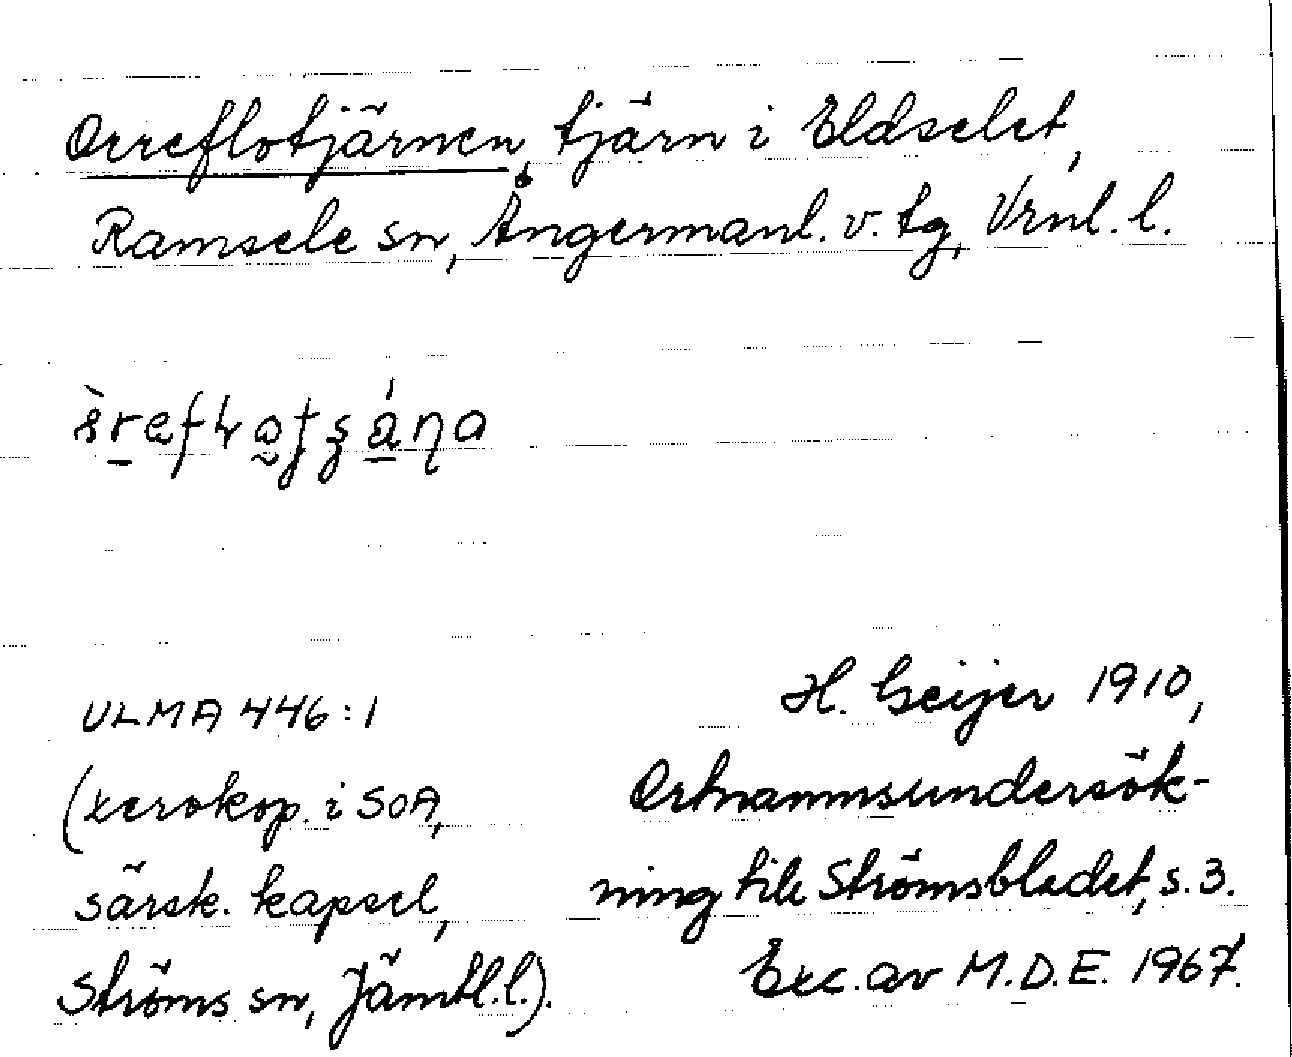 Orreflotjärnen, tjärn i Eldselet,
Ramsele sn, Ångermanl. v. tg, Vrnl. l.
ULMA 446:1
(xerokop. i SOA,
särsk. kapsel,
Ströms sn, Jämtl.l.).
H. Geijer 1910,
Ortnamnsundersök-
ning till Strömsbladet, s. 3.
Exc. av M.D.E. 1967.